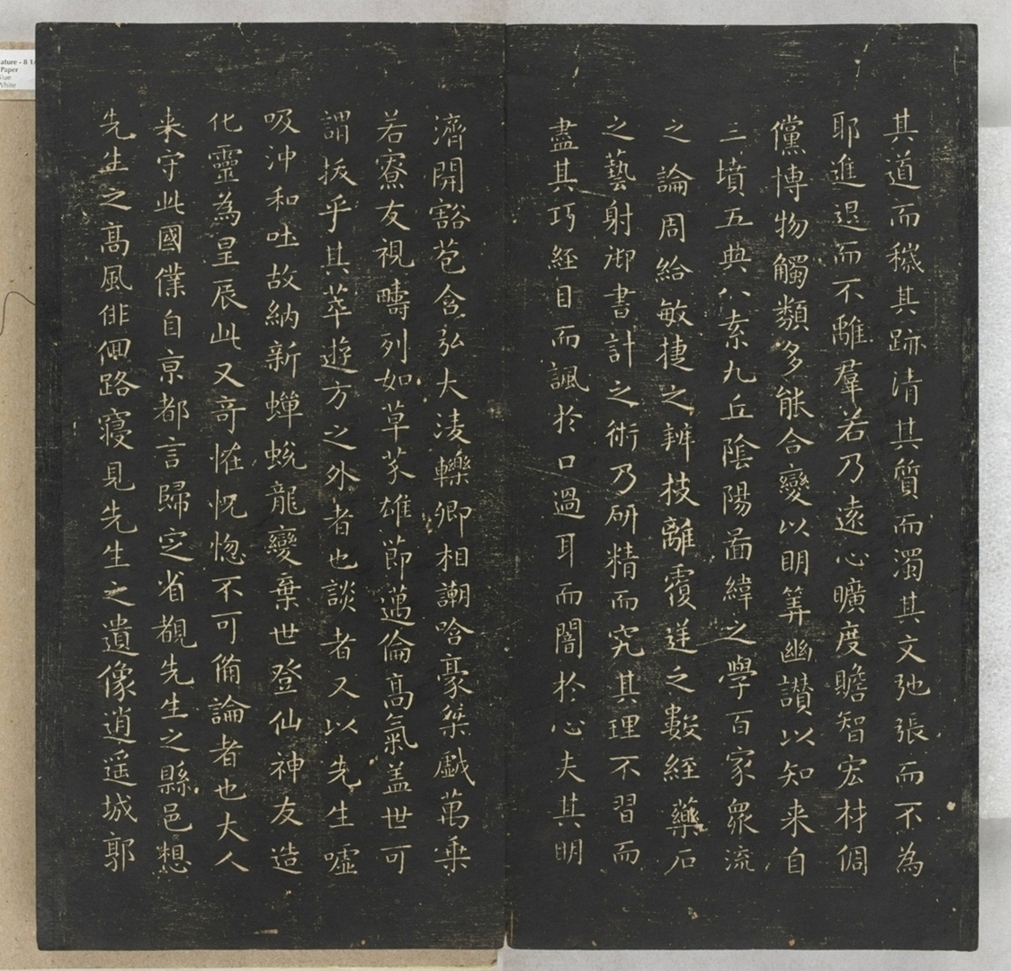 其道而穢其跡清其質而濁其文弛張而不為
耶進退而不離羣若乃遠心曠度贍智宏材倜
儻博物觸類多能合變以明筭幽讃以知来自
三墳五典八索九丘陰陽啚緯之學百家衆流
之論周給敏捷之辨枝離覆逆之數経藥石
之藝射御書計之術乃研精而究其理不習而
盡其巧経目而諷於口過耳而闇於心夫其明
濟開豁苞含弘大淩轢卿相謿哈豪桀戲萬乗
若寮友視疇列如草芥雄節邁倫高氣盖世可
謂拔乎其萃遊方之外者也談者又以先生噓
吸沖和吐故納新蟬蛻龍變棄世登仙神友造
化靈為星辰此又奇恠怳惚不可備論者也大人
来守此國僕自京都言歸定省覩先生之縣邑想
先生之高風俳佪路寢見先生之遺像逍遥城郭
ature - 8 1/
Paper
White